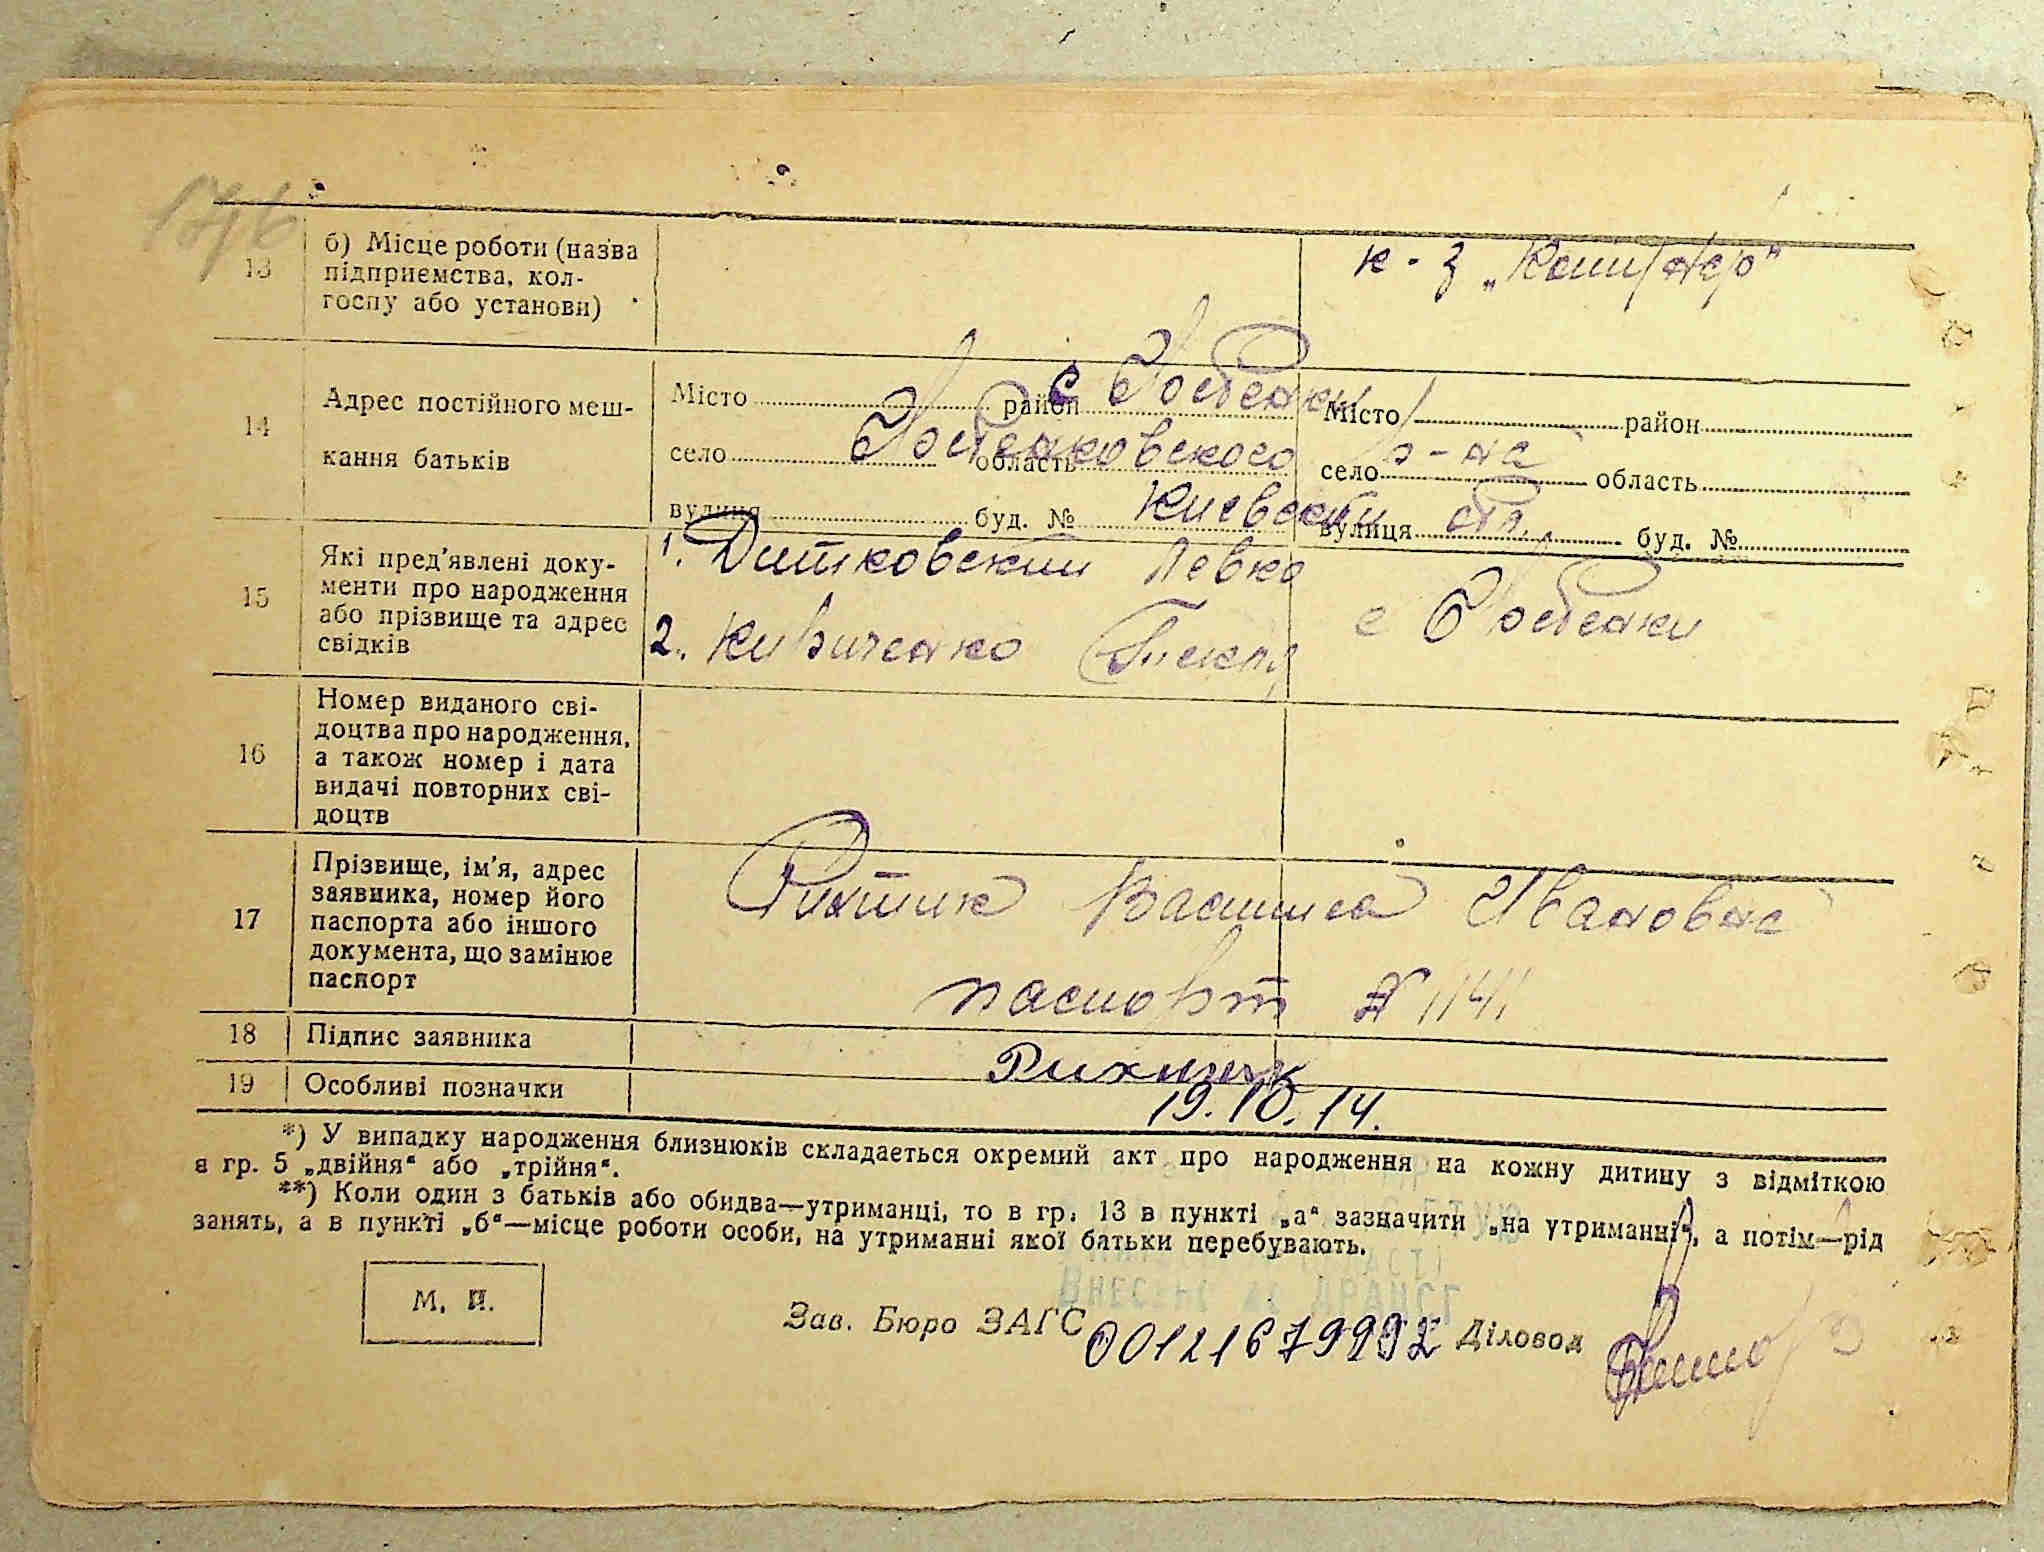 176
13
б) Місце роботи (назва
підприємства, кол-
госпу або установи)
к-з
14
Адрес постійного меш-
кання батьків
Місто район с Гребенки Місто район
село область Гребенковского р-на село область
вулиця буд. № Киевской обл. вулиця буд. №
15
Які пред'явлені доку-
менти про народження
або прізвище та адрес
свідків
1. Дитковский Левко
2. Кириченко с Гребенки
16
Номер виданого сві-
доцтва про народження,
а також номер і дата
видачі повторних сві-
доцтв
17
Прізвище, ім'я, адрес
заявника, номер його
паспорта або іншого
документа, що замінює
паспорт
Василиса Ивановна
паспорт № 1141
18 Підпис заявника
19 Особливі позначки
19.10.14.
*) У випадку народження близнюків складається окремий акт про народження на кожну дитину з відміткою
в гр. 5 „двійня“ або „трійня“.
**) Коли один з батьків або обидва—утриманці, то в гр. 13 в пункті „а“ зазначити „на утриманні“, а потім—рід
занять, а в пункті „б“—місце роботи особи, на утриманні якої батьки перебувають.
Внесено до ДРАЦСГ
М. П.
Зав. Бюро ЗАГС 00121679992 Діловод